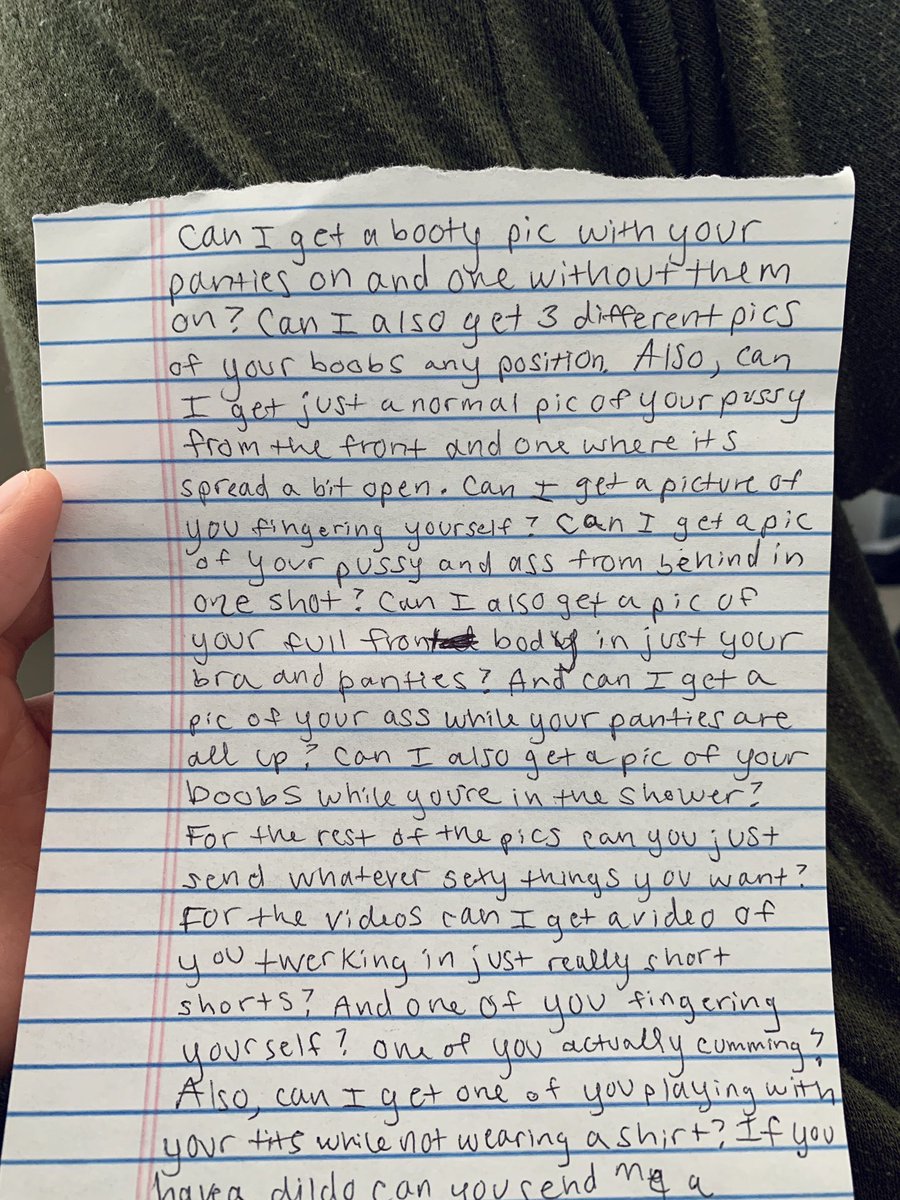 Can I get a booty pic with your
panties on and one without them
on? Can I also get 3 different pics
of your boobs any position. Also, can
I get just a normal pic of your pussy
from the front and one where its
spread a bit open. Can I get a picture of
you fingering yourself? Can I get a pic
of your pussy and ass from behind in
one shot? Can I also get a pic of
your full front body in just your
bra and panties? And can I get a
pic of your ass while your panties are
all up? Can I also get a pic of your
boobs while you're in the shower?
For the rest of the pics can you just
send whatever sexy things you want?
For the videos can I get a video of
you twerking in just really short
shorts? And one of you fingering
yourself? One of you actually cumming?
Also, can I get one of you playing with
your tits while not wearing a shirt? If you
have a dildo can you send me a